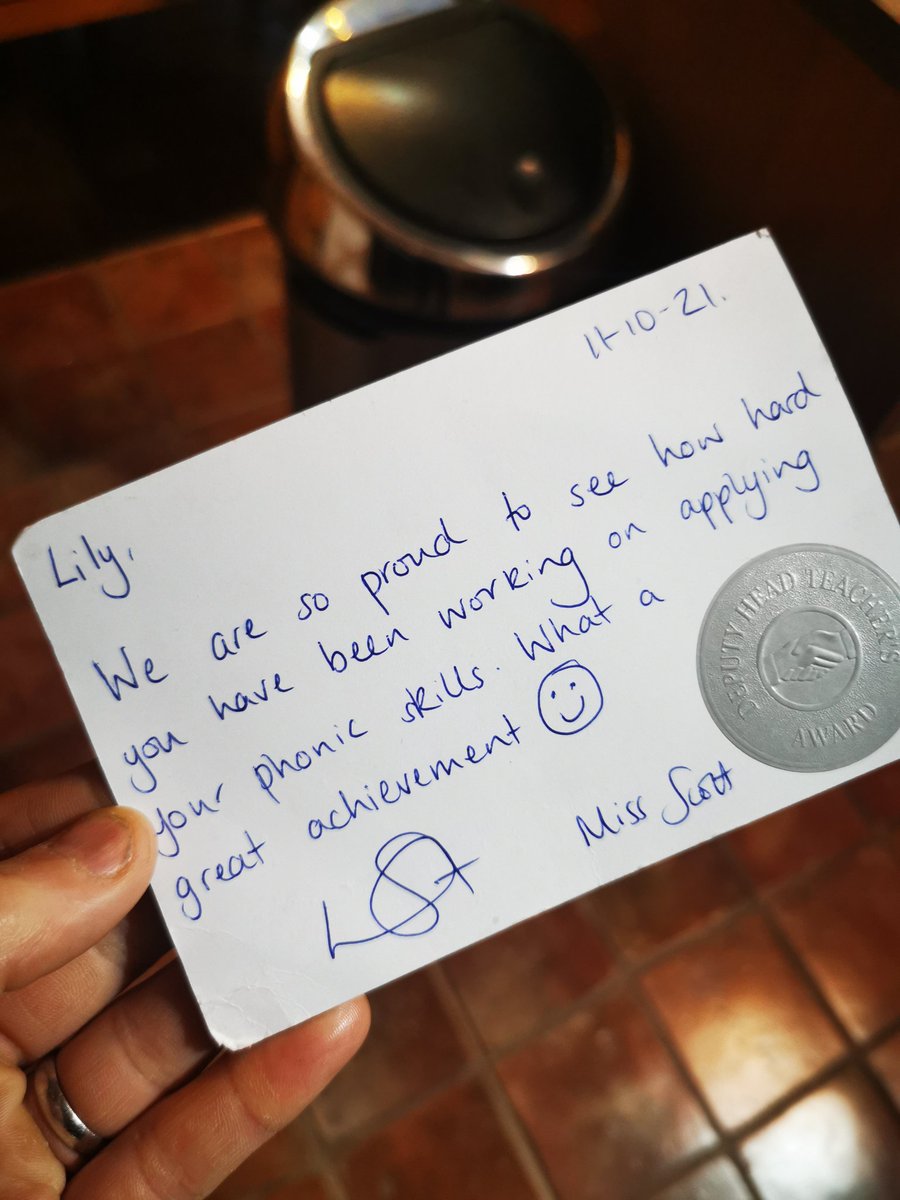 11-10-21.
Lily,
We are so proud to see how hard
you have been working on applying
your phonic skills. What a
great achievement
Miss Scott
DEPUTY HEAD TEACHER'S
AWARD